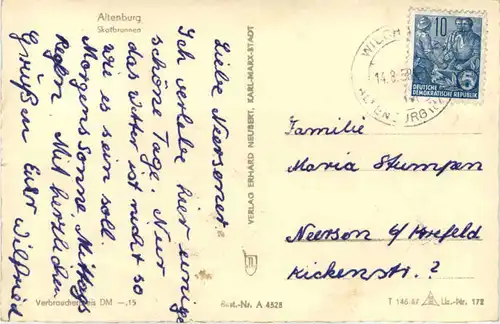 Altenburg
Skatbrunnen
Liebe Neersener.
Ich verlebe hier einige
schöne Tage. Nur
das Wetter ist nicht so
wie es sein soll.
Morgens Sonne, Mittags
Regen. Mit herzlichen
Grüßen Euer Wilfried
Verbraucherpreis DM —,15
VERLAG ERHARD NEUBERT, KARL-MARX-STADT
Best.-Nr. A 4528
10
DEUTSCHE
DEMOKRATISCHE REPUBLIK
14.8.58
Familie
Maria Stumpen
Neersen b/Krefeld
Kickenstr. ?
T 146/57
Liz.-Nr. 172